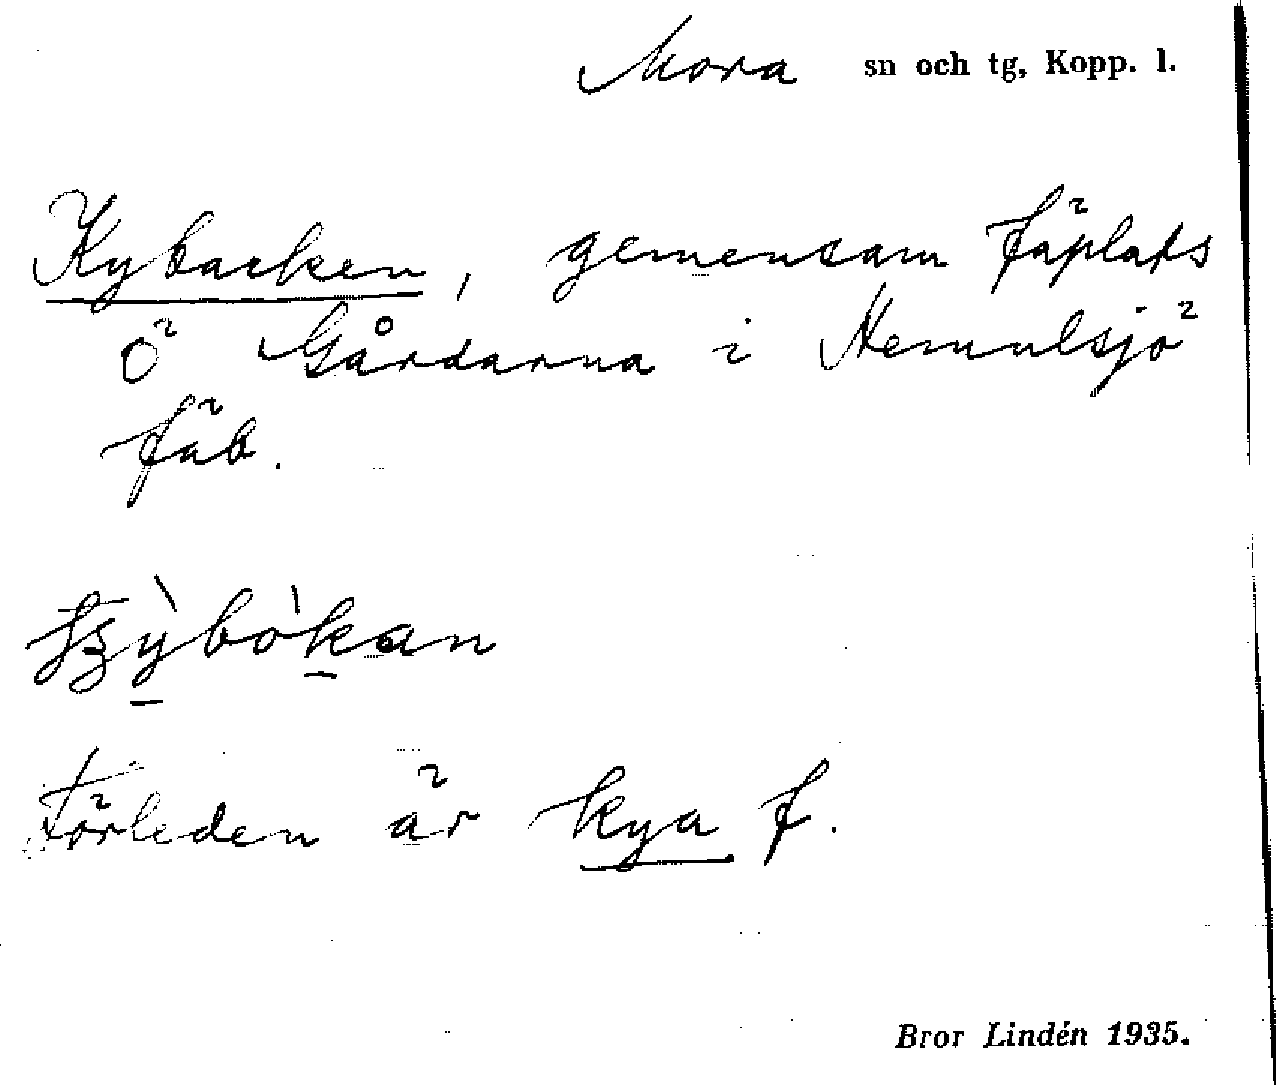 Mora sn och tg, Kopp. l.
Kybacken, gemensam fäplats
Ö Gårdarna i Hemulsjö
fäb.
tʒỳbòkan
Förleden är kya f.
Bror Lindén 1935.